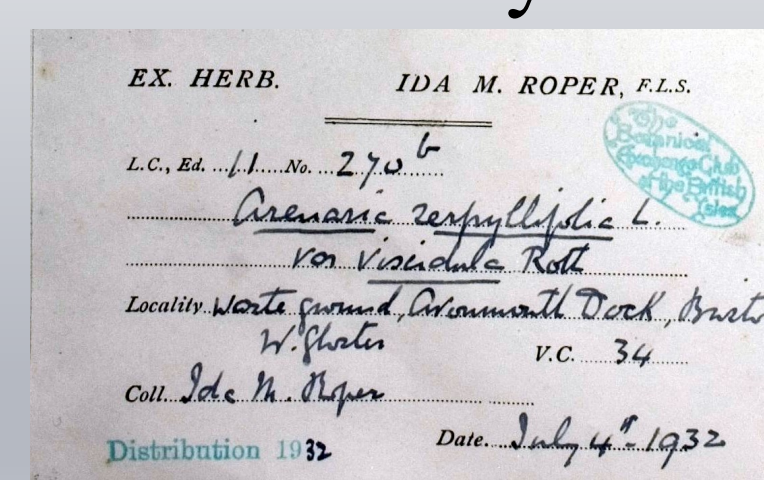 y
EX. HERB. IDA M. ROPER, F.L.S.
The
Botanical
Exchange Club
of the British
Isles
L.C., Ed. 11 No. 270 b
Arenaria serpyllifolia L.
var viscidula Roth
Locality Waste ground, Avonmouth Dock, Bristo
W. Gloster
V.C. 34
Coll. Ida M. Roper
Distribution 1932
Date. July 4th 1932